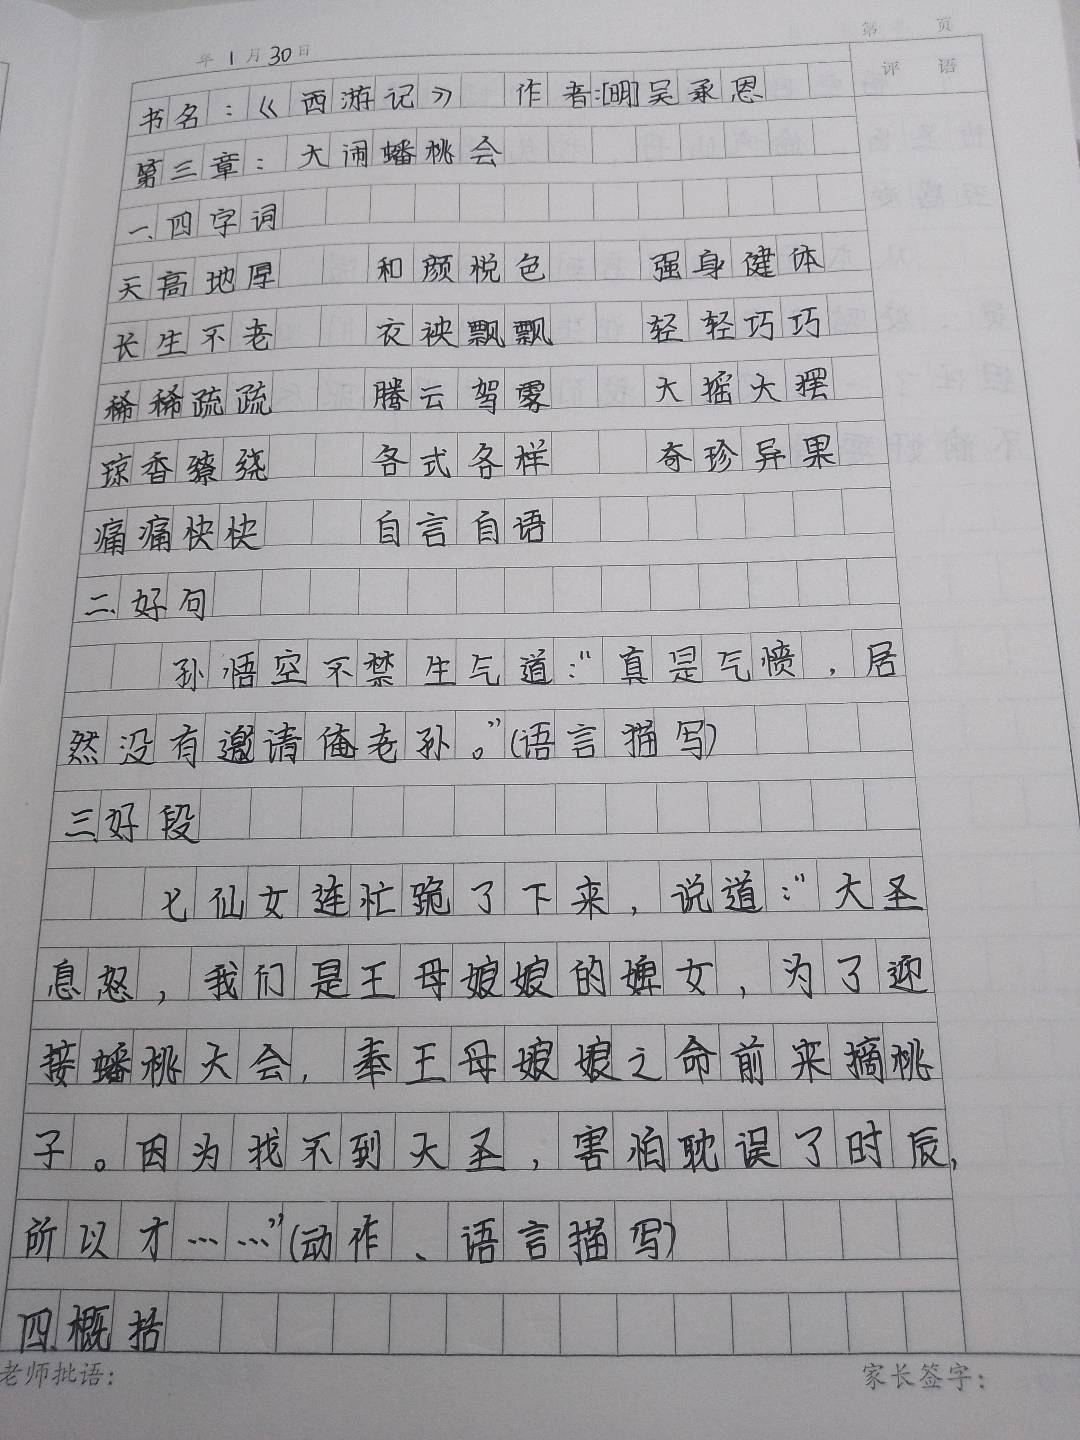 第 页
年1月30日
评 语
书名：《西游记》 作者：[明]吴承恩
第三章：大闹蟠桃会
一、四字词
天高地厚 和颜悦色 强身健体
长生不老 衣袂飘飘 轻轻巧巧
稀稀疏疏 腾云驾雾 大摇大摆
琼香缭绕 各式各样 奇珍异果
痛痛快快 自言自语
二、好句
孙悟空不禁生气道：“真是气愤，居
然没有邀请俺老孙。”(语言描写)
三、好段
七仙女连忙跪了下来，说道：“大圣
息怒，我们是王母娘娘的婢女，为了迎
接蟠桃大会，奉王母娘娘之命前来摘桃
子。因为找不到大圣，害怕耽误了时辰，
所以才……”(动作、语言描写)
四、概括
老师批语：
家长签字：